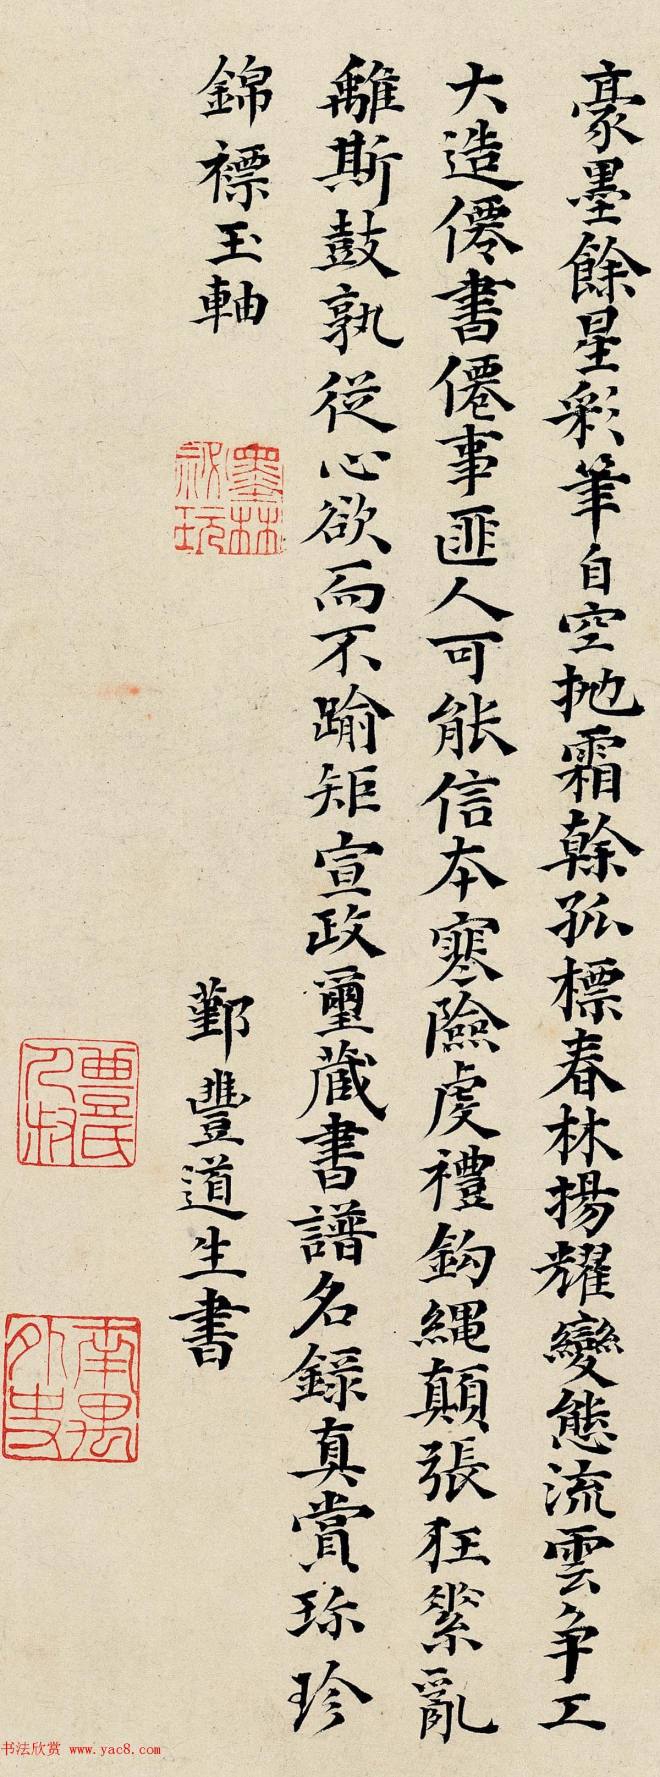 豪墨餘星彩筆自空抛霜榦孤標春林揚耀變態流雲争工
大造僊書僊事匪人可能信本寒險虔禮鈎繩顛張狂縈亂
離斯鼓孰從心欲而不踰矩宣政璽藏書譜名録真賞珎珍
錦褾玉軸
鄞豐道生書
墨林祕玩
豐氏人叔
南禺外史
书法欣赏 www.yac8.com